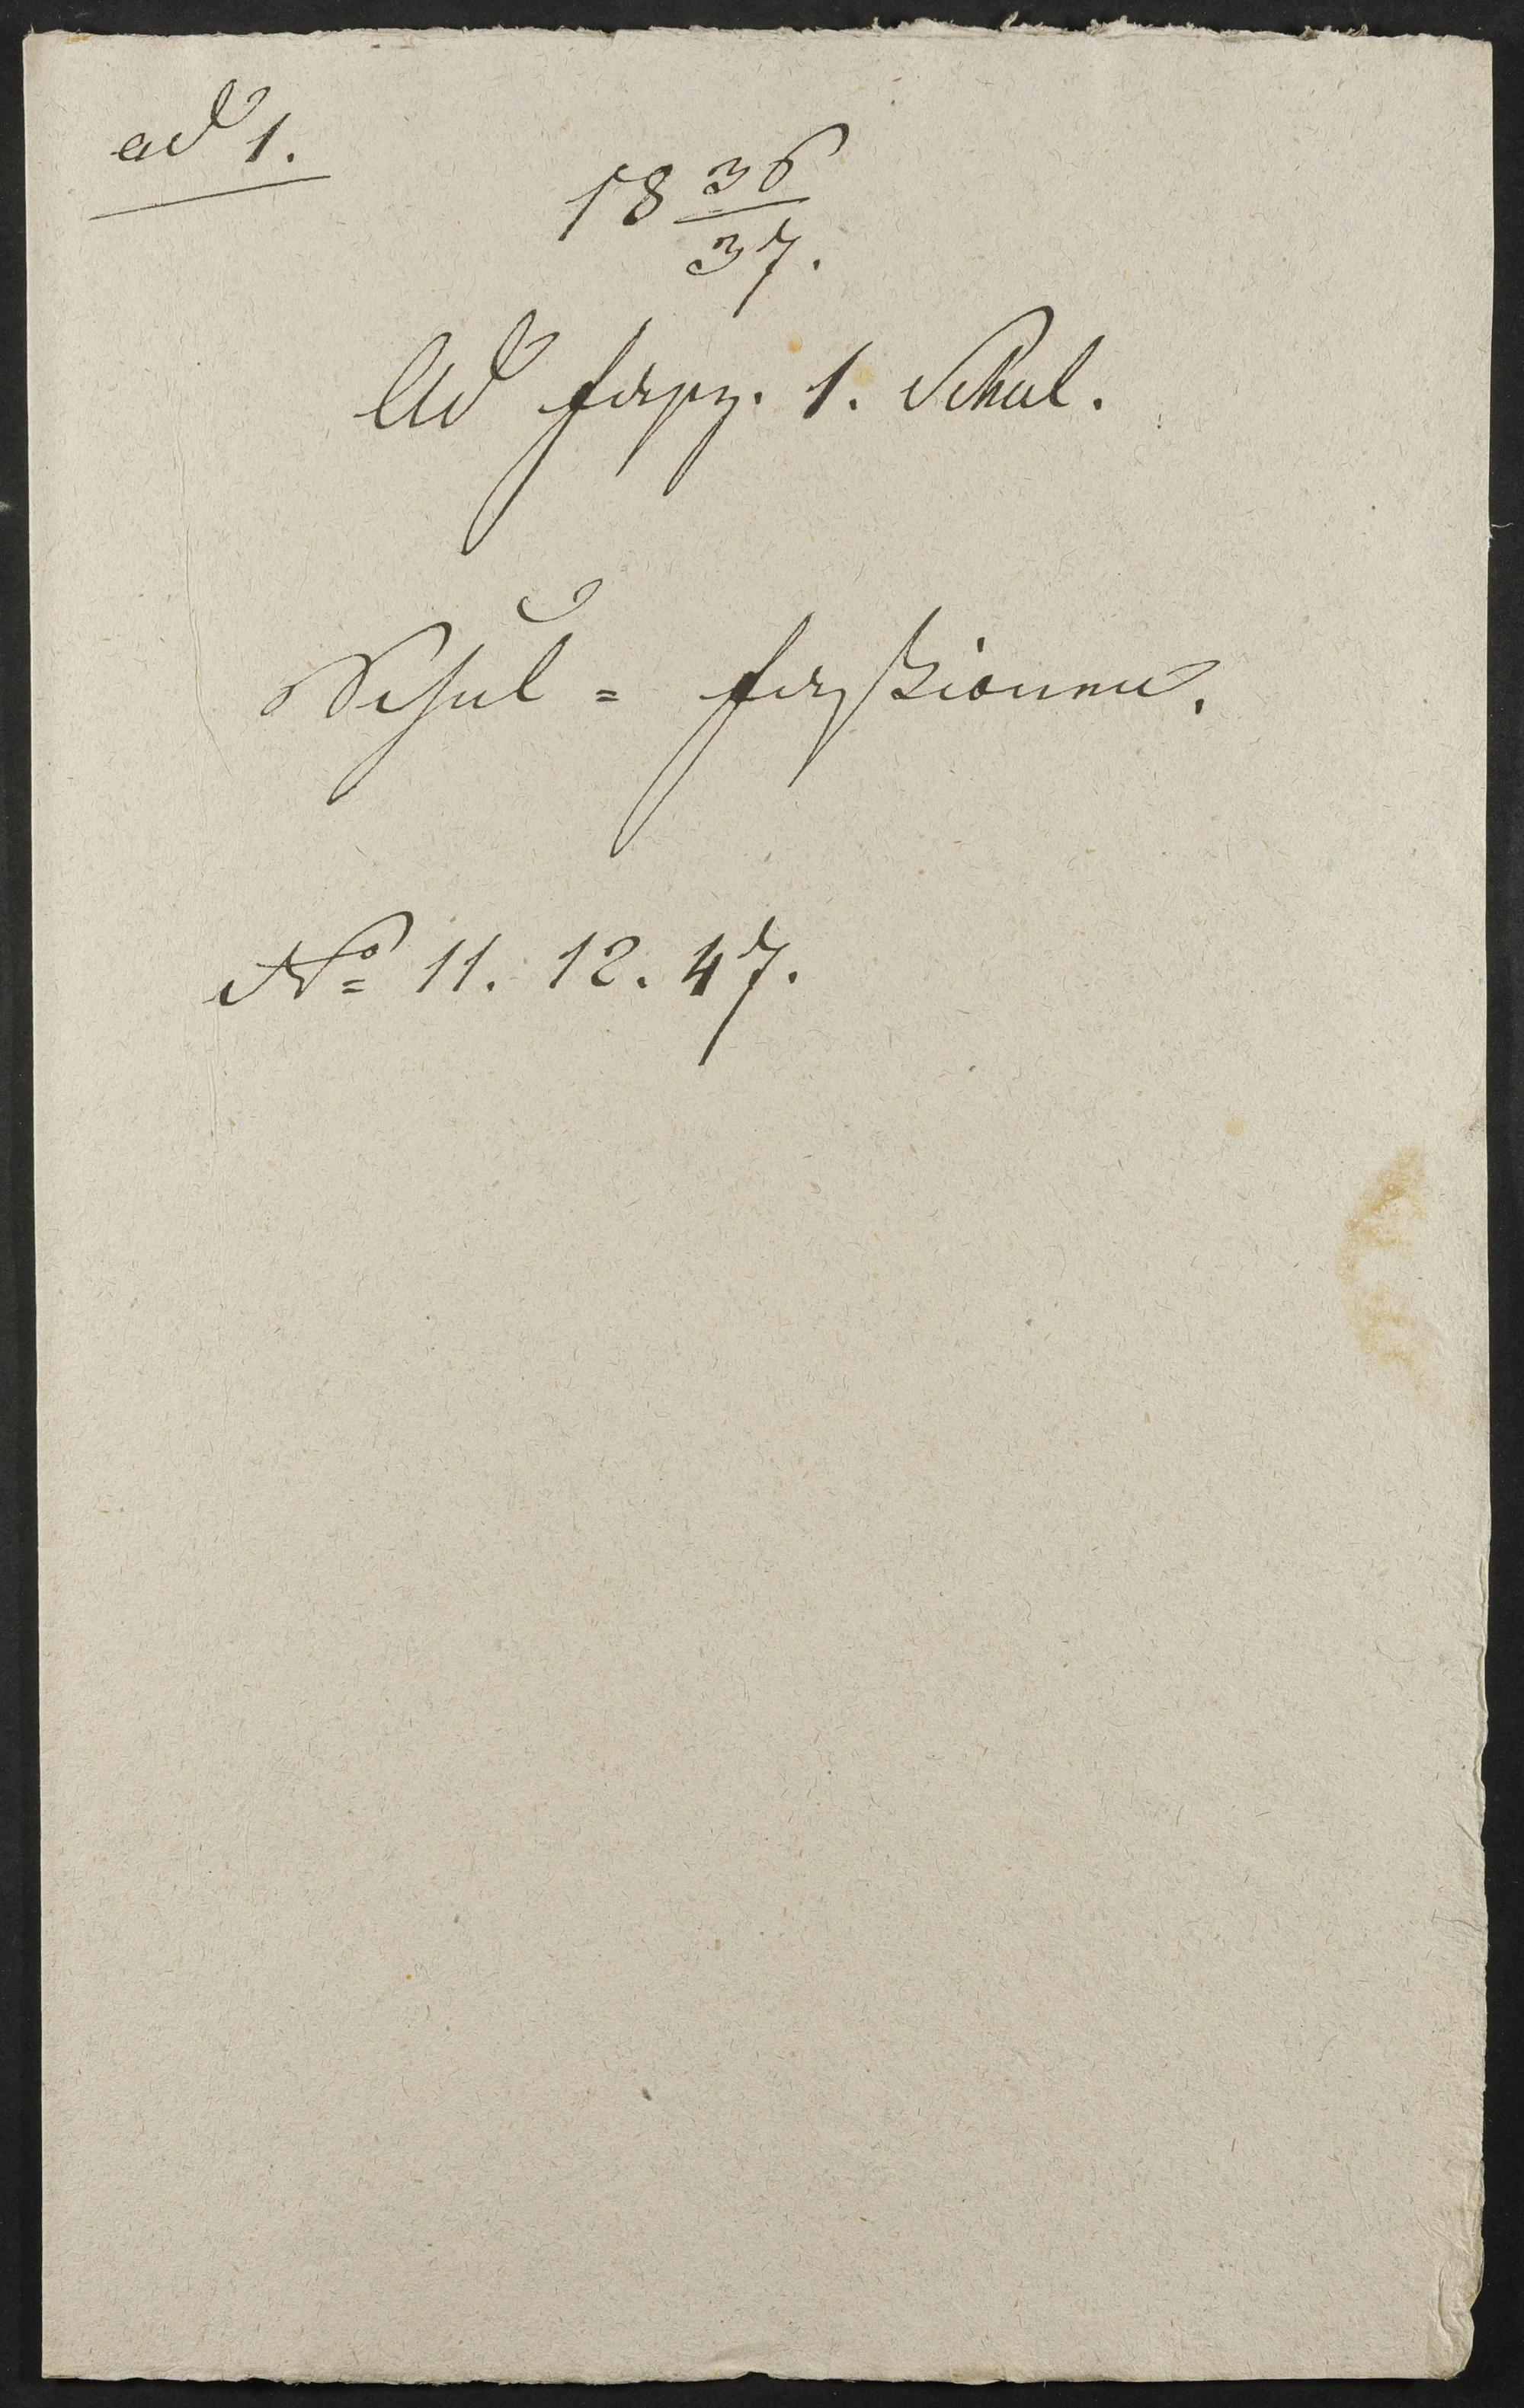 ad 1.
18 36/37.
Ad fasz. 1. Schul.
Schul = fassionen.
No 11. 12. 47.